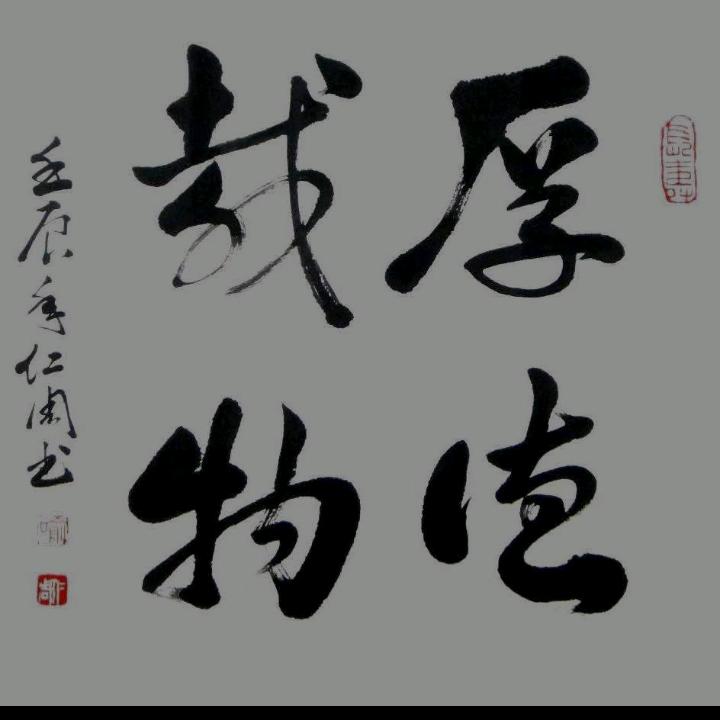 厚德
载物
壬辰年仁周书